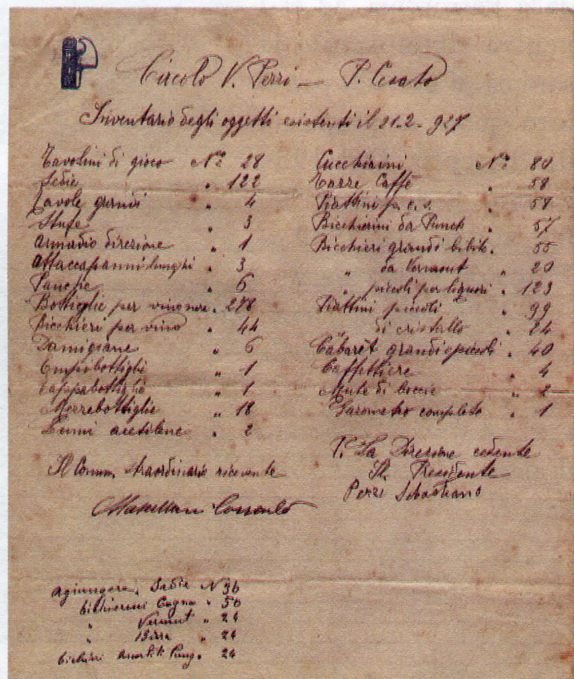 Circolo V. Perri – P. Cerato
Inventario degli oggetti esistenti il 21.2.927
Tavolini di gioco N.° 28
Sedie " 122
Tavole grandi " 4
Stufe " 3
Armadio direzione " 1
Attaccapanni lunghi " 3
Panche " 6
Bottiglie per vino " 278
Bicchieri per vino " 44
Damigiane " 6
Empibottigli " 1
Tappabottiglie " 1
Mezzebottiglie " 18
Lumi acetilene " 2
Il Comm. Straordinario ricevente
Cucchiaini N.° 80
Tazze Caffè " 58
Piattini p. c. s. " 58
Bicchierini da Punch " 57
Bicchieri grandi bibite " 55
" da Vermout " 20
" piccoli per liquori " 123
Piattini piccoli " 99
" di cristallo " 24
Cabaret grandi e piccoli " 40
Caffettiere " 4
Mute di boccie " 2
Barometro completo " 1
P. La Direzione cedente
Il Presidente
Perri Sebastiano
Agiungere, Sedie N 36
bichierini Cogna " 50
" Vermut " 24
" Birra " 24
bichini " 24